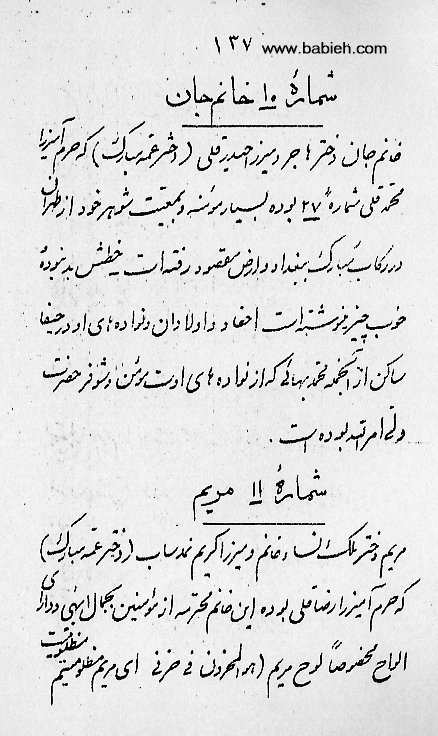 ۱۳۷
www.babieh.com
شمارهٔ ۱۰ خانم جان
خانم جان دختر هاجر و میرزا حیدر قلی (دختر عمه مبارک) که حرم آمیرزا
محمد قلی شمارهٔ ۲۷ بوده بسیار مؤمنه و بمعیت شوهر خود از طهران
در رکاب مبارک ببغداد و ارض مقصود رفته است خطش بد نبوده
خوب چیز مینوشته است احفاد و اولادان و نواده های او در حیفا
ساکن از آنجمله محمد بهائی که از نواده های اوست مؤمن و شوفر حضرت
ولی امرالله بوده است .
شمارهٔ ۱۱ مریم
مریم دختر ملک النساء خانم و میرزا کریم نمدساب (دختر عمه مبارک)
که حرم آمیرزا رضا قلی بوده این خانم محترمه از مؤمنین بجمال ابهی و دارای
الواح مخصوصاً لوح مریم (هو المحزون فی حزنی ای مریم مظلومیتم مظلومیت